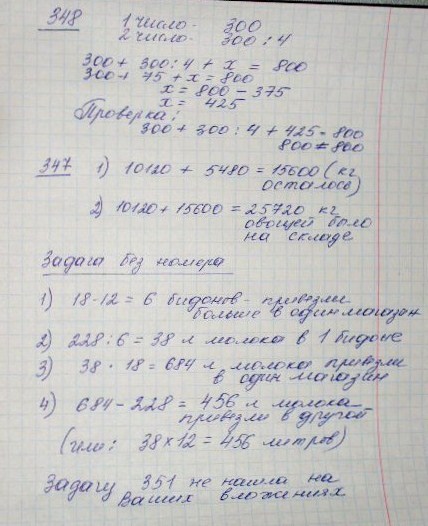 348 1 число - 300
2 число - 300 : 4
300 + 300 : 4 + x = 800
300 + 75 + x = 800
x = 800 - 375
x = 425
Проверка:
300 + 300 : 4 + 425 = 800
800 = 800
347 1) 10120 + 5480 = 15600 (кг
осталось)
2) 10120 + 15600 = 25720 кг
овощей было
на складе
Задача без номера
1) 18 - 12 = 6 бидонов - привезли
больше в один магазин
2) 228 : 6 = 38 л молока в 1 бидоне
3) 38 · 18 = 684 л молока привезли
в один магазин
4) 684 - 228 = 456 л молока
привезли в другой
(или: 38 × 12 = 456 литров)
Задачу 351 не нашла на
Ваших вложениях